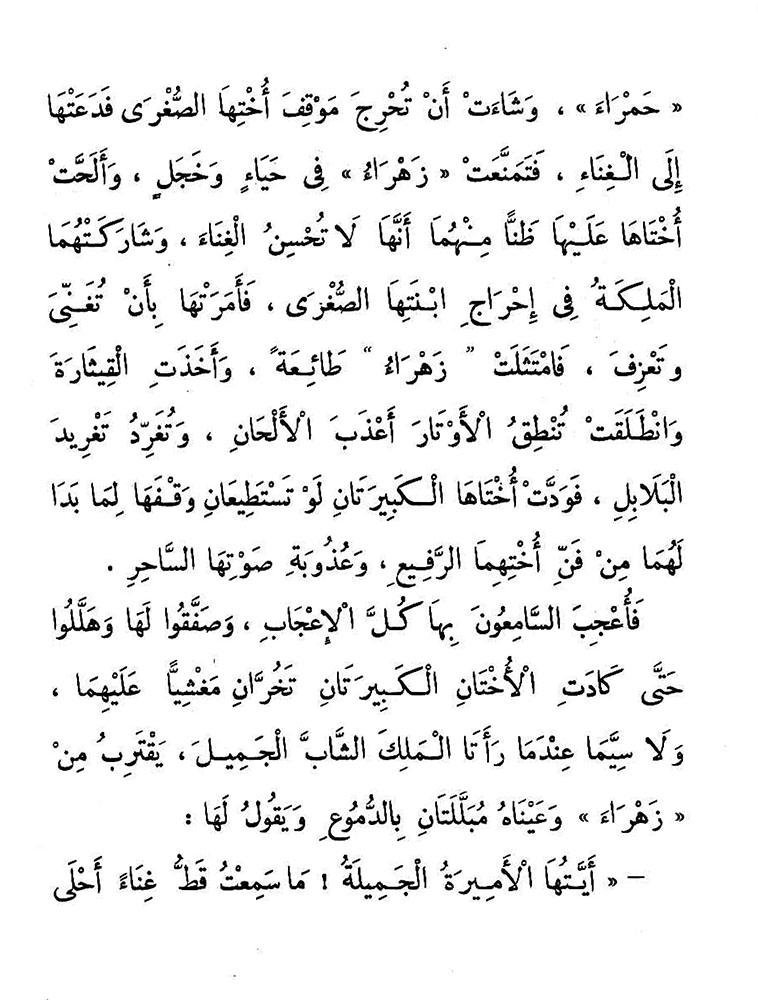 « حَمْرَاءَ » ، وَشَاءَتْ أَنْ تُحْرِجَ مَوْقِفَ أُخْتِهَا الصُّغْرَى فَدَعَتْهَا
إِلَى الْغِنَاءِ ، فَتَمَنَّعَتْ « زَهْرَاءُ » فِى حَيَاءٍ وَخَجَلٍ ، وَأَلَحَّتْ
أُخْتَاهَا عَلَيْهَا ظَنًّا مِنْهُمَا أَنَّهَا لَا تُحْسِنُ الْغِنَاءَ ، وَشَارَكَتْهُمَا
الْمَلِكَةُ فِى إِحْرَاجِ ابْنَتِهَا الصُّغْرَى ، فَأَمَرَتْهَا بِأَنْ تُغَنِّىَ
وَتَعْزِفَ ، فَامْتَثَلَتْ " زَهْرَاءُ " طَائِعَةً ، وَأَخَذَتِ الْقِيثَارَةَ
وَانْطَلَقَتْ تُنْطِقُ الْأَوْتَارَ أَعْذَبَ الْأَلْحَانِ ، وَتُغَرِّدُ تَغْرِيدَ
الْبَلَابِلِ ، فَوَدَّتْ أُخْتَاهَا الْكَبِيرَتَانِ لَوْ تَسْتَطِيعَانِ وَقْفَهَا لِمَا بَدَا
لَهُمَا مِنْ فَنِّ أُخْتِهِمَا الرَّفِيعِ ، وَعُذُوبَةِ صَوْتِهَا السَّاحِرِ .
فَأُعْجِبَ السَّامِعُونَ بِهَا كُلَّ الْإِعْجَابِ ، وَصَفَّقُوا لَهَا وَهَلَّلُوا
حَتَّى كَادَتِ الْأُخْتَانِ الْكَبِيرَتَانِ تَخُرَّانِ مَغْشِيًّا عَلَيْهِمَا ،
وَلَا سِيَّمَا عِنْدَمَا رَأَتَا الْمَلِكَ الشَّابَّ الْجَمِيلَ ، يَقْتَرِبُ مِنْ
« زَهْرَاءَ » وَعَيْنَاهُ مُبَلَّلَتَانِ بِالدُّمُوعِ وَيَقُولُ لَهَا :
– « أَيَّتُهَا الْأَمِيرَةُ الْجَمِيلَةُ ! مَا سَمِعْتُ قَطُّ غِنَاءً أَحْلَى